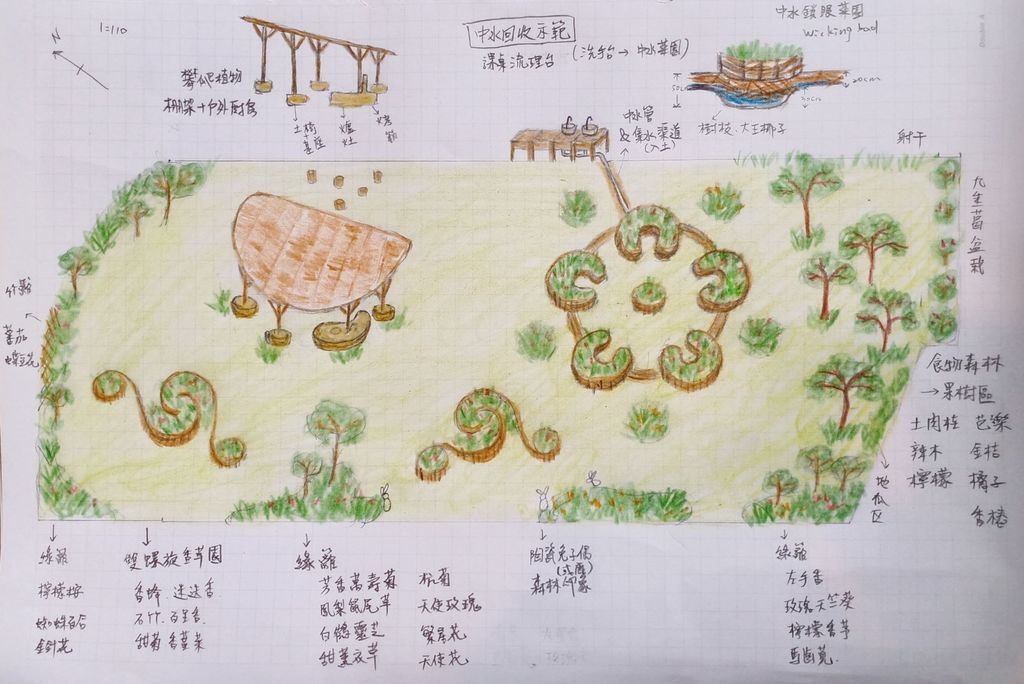 N
1=110
攀爬植物
棚架+戶外廚房
土樹
基座
爐
灶
烤
箱
中水回收示範
課桌流理台
(洗手台→中水菜園)
中水管
&集水渠道
(入土)
中水鎖眼菜園
Wicking bed
50cm
30cm
20cm
樹枝、大王椰子
射干
九重葛盆栽
竹籬
蕃茄
蝶豆花
食物森林
→果樹區
土肉桂 芭樂
辣木 金桔
檸檬 橘子
香椿
地瓜区
綠籬
檸檬桉
蜘蛛百合
金針花
雙螺旋香草園
香蜂 迷迭香
石竹 百里香
甜菊 香堇菜
綠籬
芳香萬壽菊 杭菊
鳳梨鼠尾草 天使玫瑰
白鶴靈芝 繁星花
甜薰衣草 天使花
陶瓷兔子偶
森林印象
綠籬
左手香
玫瑰天竺葵
檸檬香茅
馬齒莧